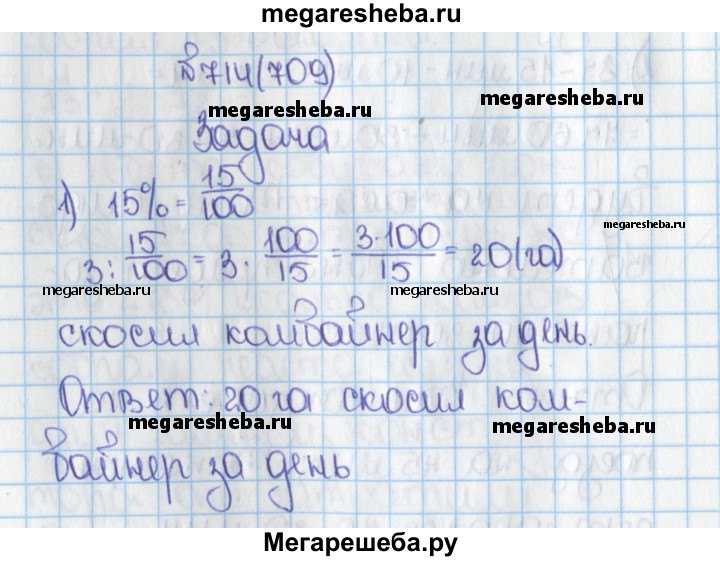 megaresheba.ru
№714(709)
megaresheba.ru
megaresheba.ru
Задача
1) 15% = 15/100
megaresheba.ru
3 : 15/100 = 3 · 100/15 = 3·100/15 = 20(га)
megaresheba.ru
megaresheba.ru
скосил комбайнер за день.
Ответ: 20 га скосил ком-
megaresheba.ru
megaresheba.ru
байнер за день
Мегарешеба.ру